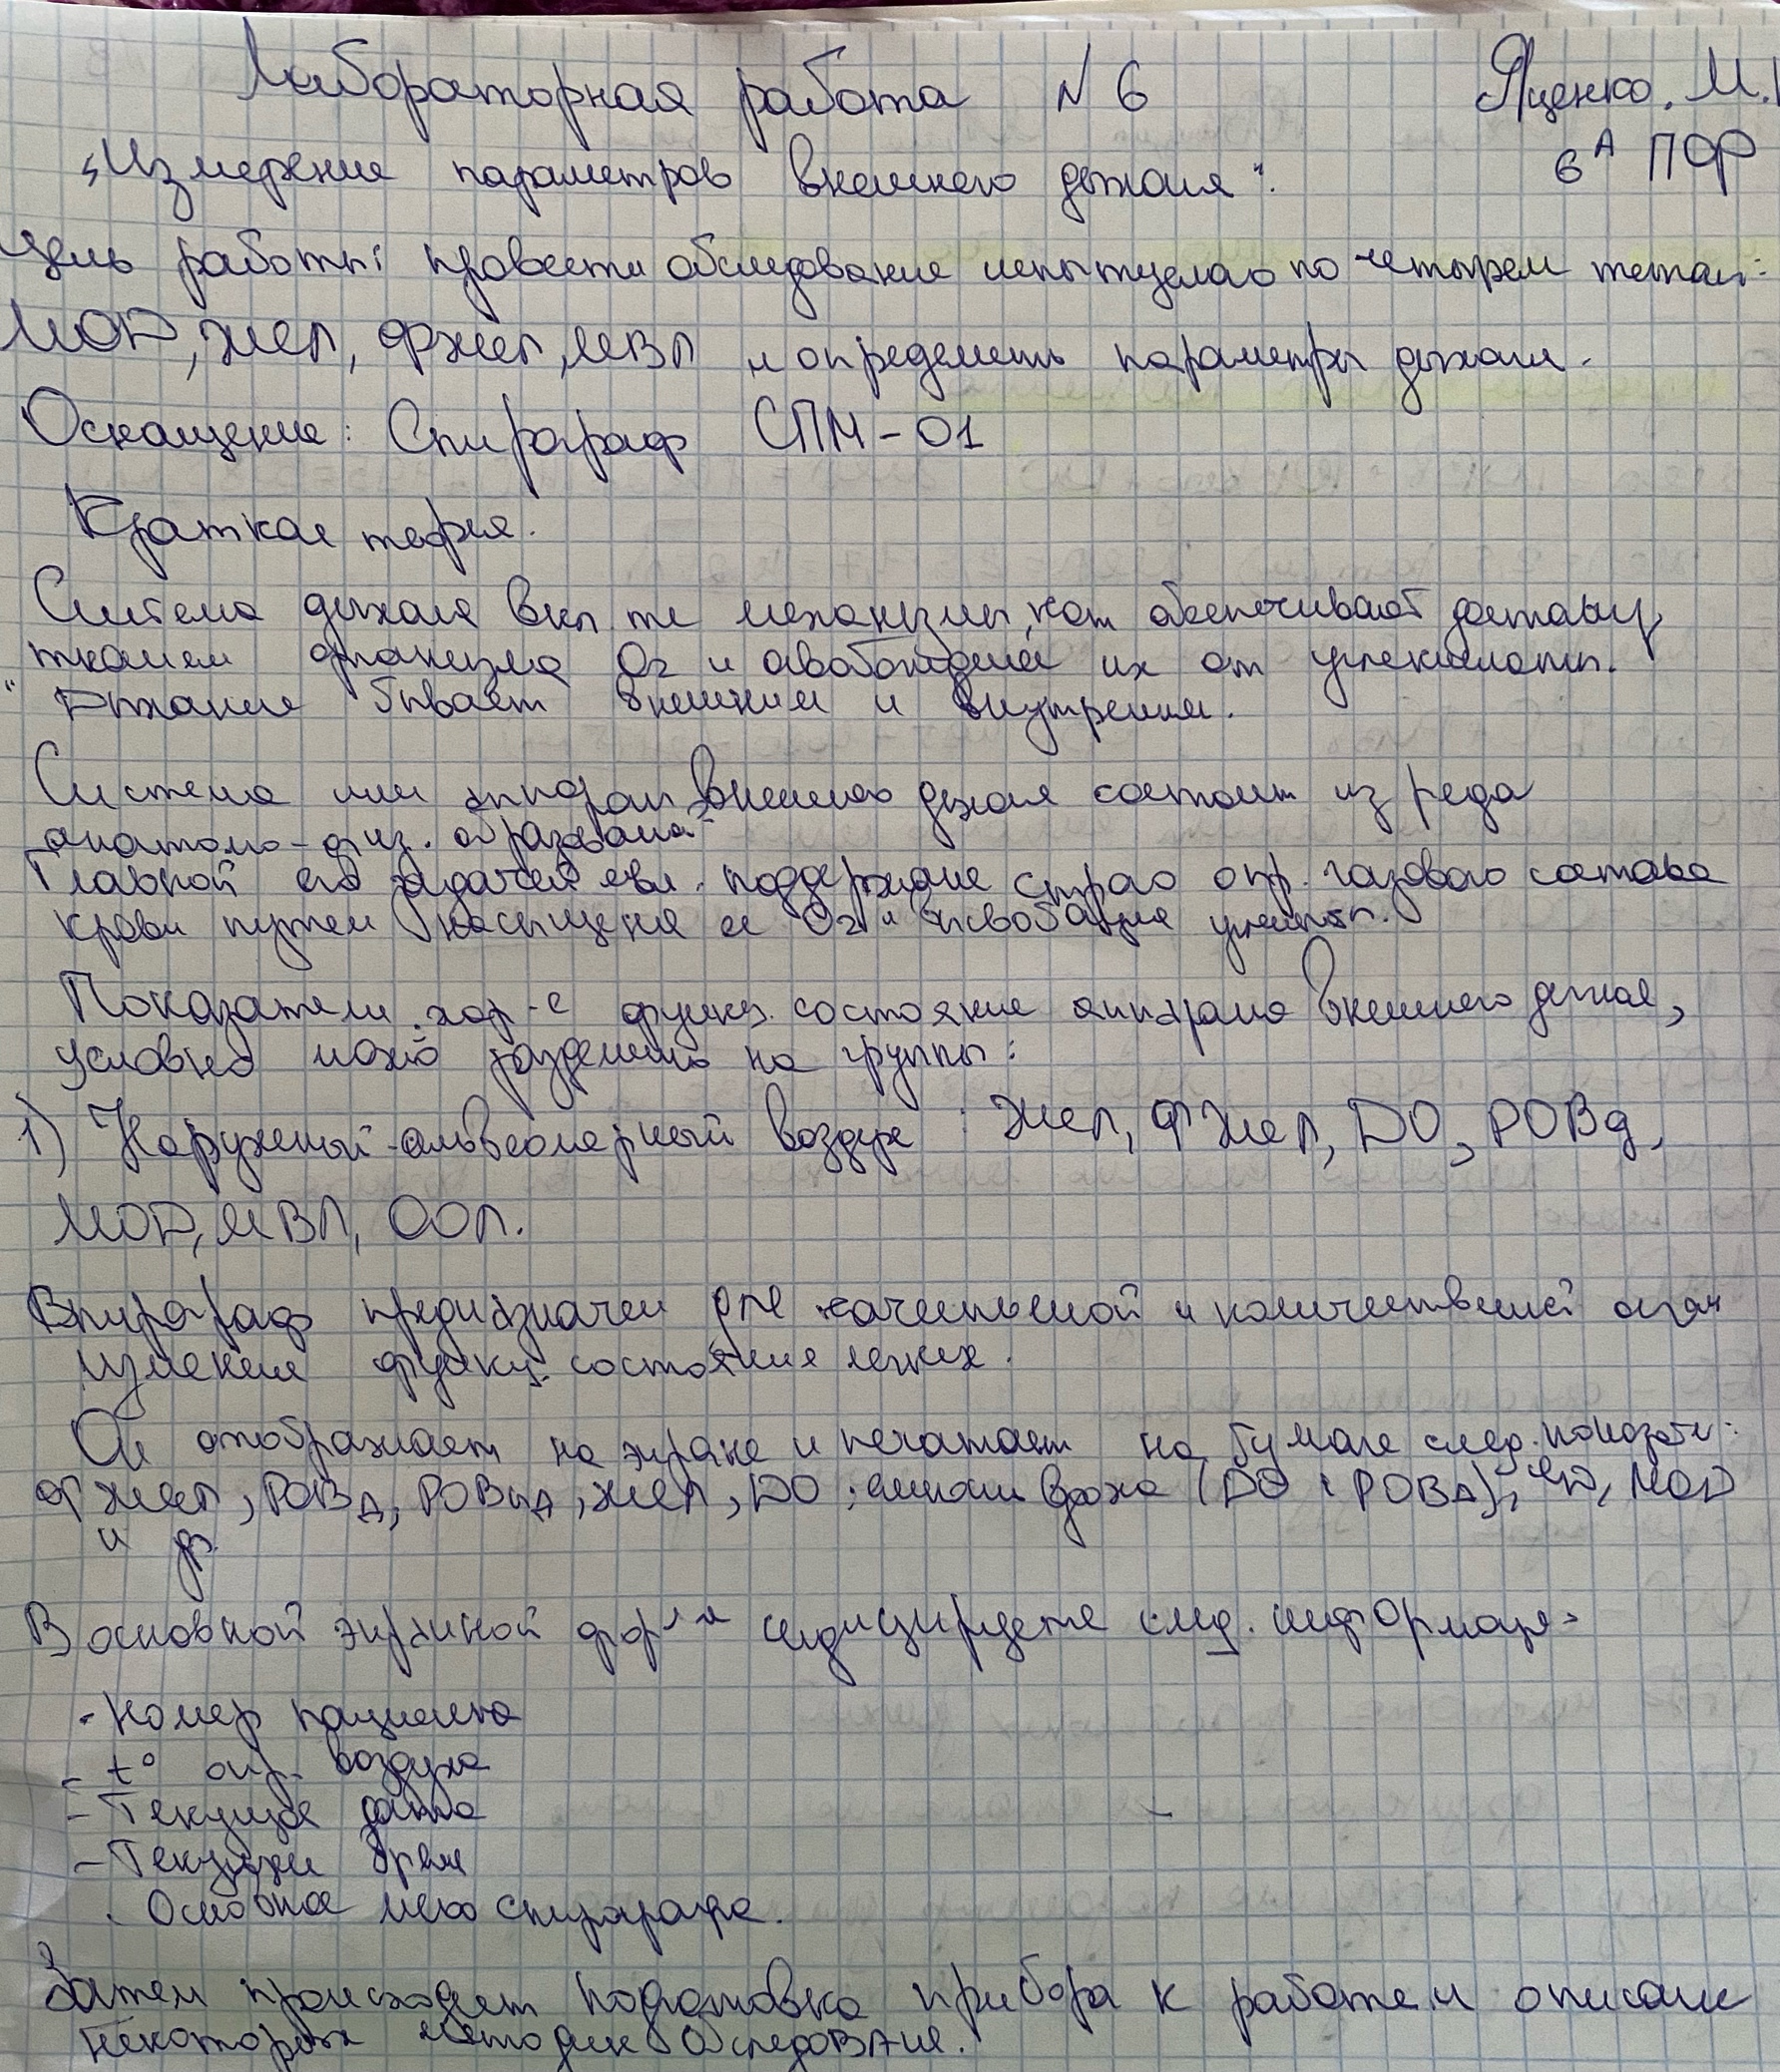 Лабораторная работа N 6 Яценко. М.
6 А ПФ
„Измерение параметров внешнего дыхания".
Цель работы: провести обследование испытуемого по четырем тетам:
МОД, ЖЕЛ, ФЖЕЛ, МВЛ и определить параметры дыхания.
Оснащение: Спирограф СПМ-01
Краткая теория.
Система дыхания вкл те механизмы, кот обеспечивает доставку
тканям организма O2 и освобождения их от углекислоты.
Дыхание бывает внешним и внутренним.
Система или аппарат внешнего дыхания состоит из ряда
анатомо-физ. образований
Главной его задачей явл. поддержание строго опр. газового состава
крови путем насыщения её O2 и освобождения
Показатели, хар-е функц. состояние аппарата внешнего дыхания,
условно можно разделить на группы:
1) Наружный-альвеолярный воздух: ЖЕЛ, ФЖЕЛ, ДО, РОВд,
МОД, МВЛ, ООЛ.
Спирограф предназначен для качественной и количественной
изменения функц. состояния легких.
Он отображает на экране и печатает на бумаге след. показат:
ФЖЕЛ, РОВд, РОВыд, ЖЕЛ, ДО, вдоха (ДО + РОВд), ЧД, МОД
и др.
В основной экранной форме индицируется след. информация
- Номер пациента
- t° окр. воздуха
- Текущая дата
- Текущее время
- Основное меню спирографа.
Затем происходит подготовка прибора к работе и описание
некоторых методик обследования.